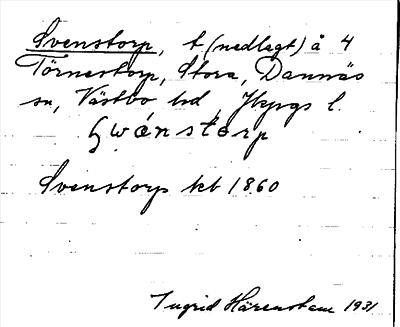 Svenstorp, t (nedlagt) å 4
Törnestorp, Stora, Dannäs
sn, Västbo hd, Jkpgs l.
Swánstorp
Svenstorp kb 1860
Ingrid Härenstam 1931